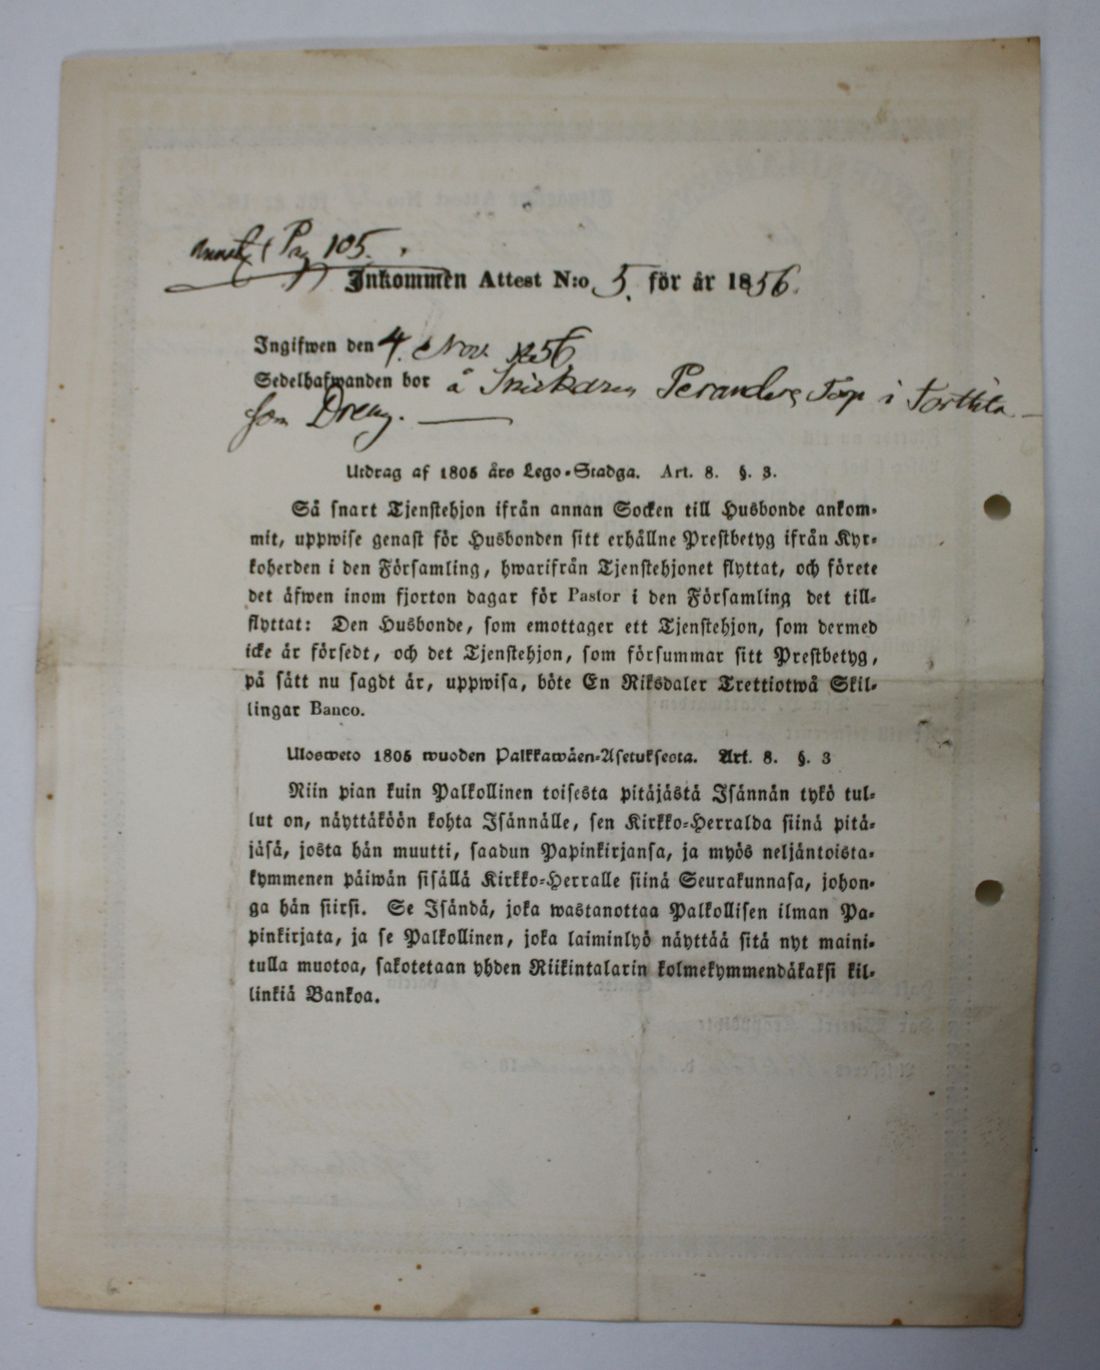 Pag 105.
Inkommen Attest N:o 5. för år 1856.
Ingifwen den 4. Nov. 1856
Sedelhafwanden bor å Snickaren Peranders Torp i Torttila
som Dreng.
Utdrag af 1805 års Lego-Stadga. Art. 8. §. 3.
Så snart Tjenstehjon ifrån annan Socken till Husbonde ankom-
mit, uppwise genast för Husbonden sitt erhållne Prestbetyg ifrån Kyr-
koherden i den Församling, hwarifrån Tjenstehjonet flyttat, och förete
det äfwen inom fjorton dagar för Pastor i den Församling det till-
flyttat: Den Husbonde, som emottager ett Tjenstehjon, som dermed
icke är försedt, och det Tjenstehjon, som försummar sitt Prestbetyg,
på sätt nu sagdt är, uppwisa, böte En Riksdaler Trettiotwå Skil-
lingar Banco.
Ulosweto 1805 wuoden Palkkawäen-Asetuksesta. Art. 8. §. 3
Niin pian kuin Palkollinen toisesta pitäjästä Isännän tykö tul-
lut on, näyttäköön kohta Isännälle, sen Kirkko-Herralda siinä pitä-
jäsä, josta hän muutti, saadun Papinkirjansa, ja myös neljäntoista-
kymmenen päiwän sisällä Kirkko-Herralle siinä Seurakunnasa, johon-
ga hän siirsi. Se Isändä, joka wastanottaa Palkollisen ilman Pa-
pinkirjata, ja se Palkollinen, joka laiminlyö näyttää sitä nyt maini-
tulla muotoa, sakotetaan yhden Riikintalarin kolmekymmendäkaksi kil-
linkiä Bankoa.